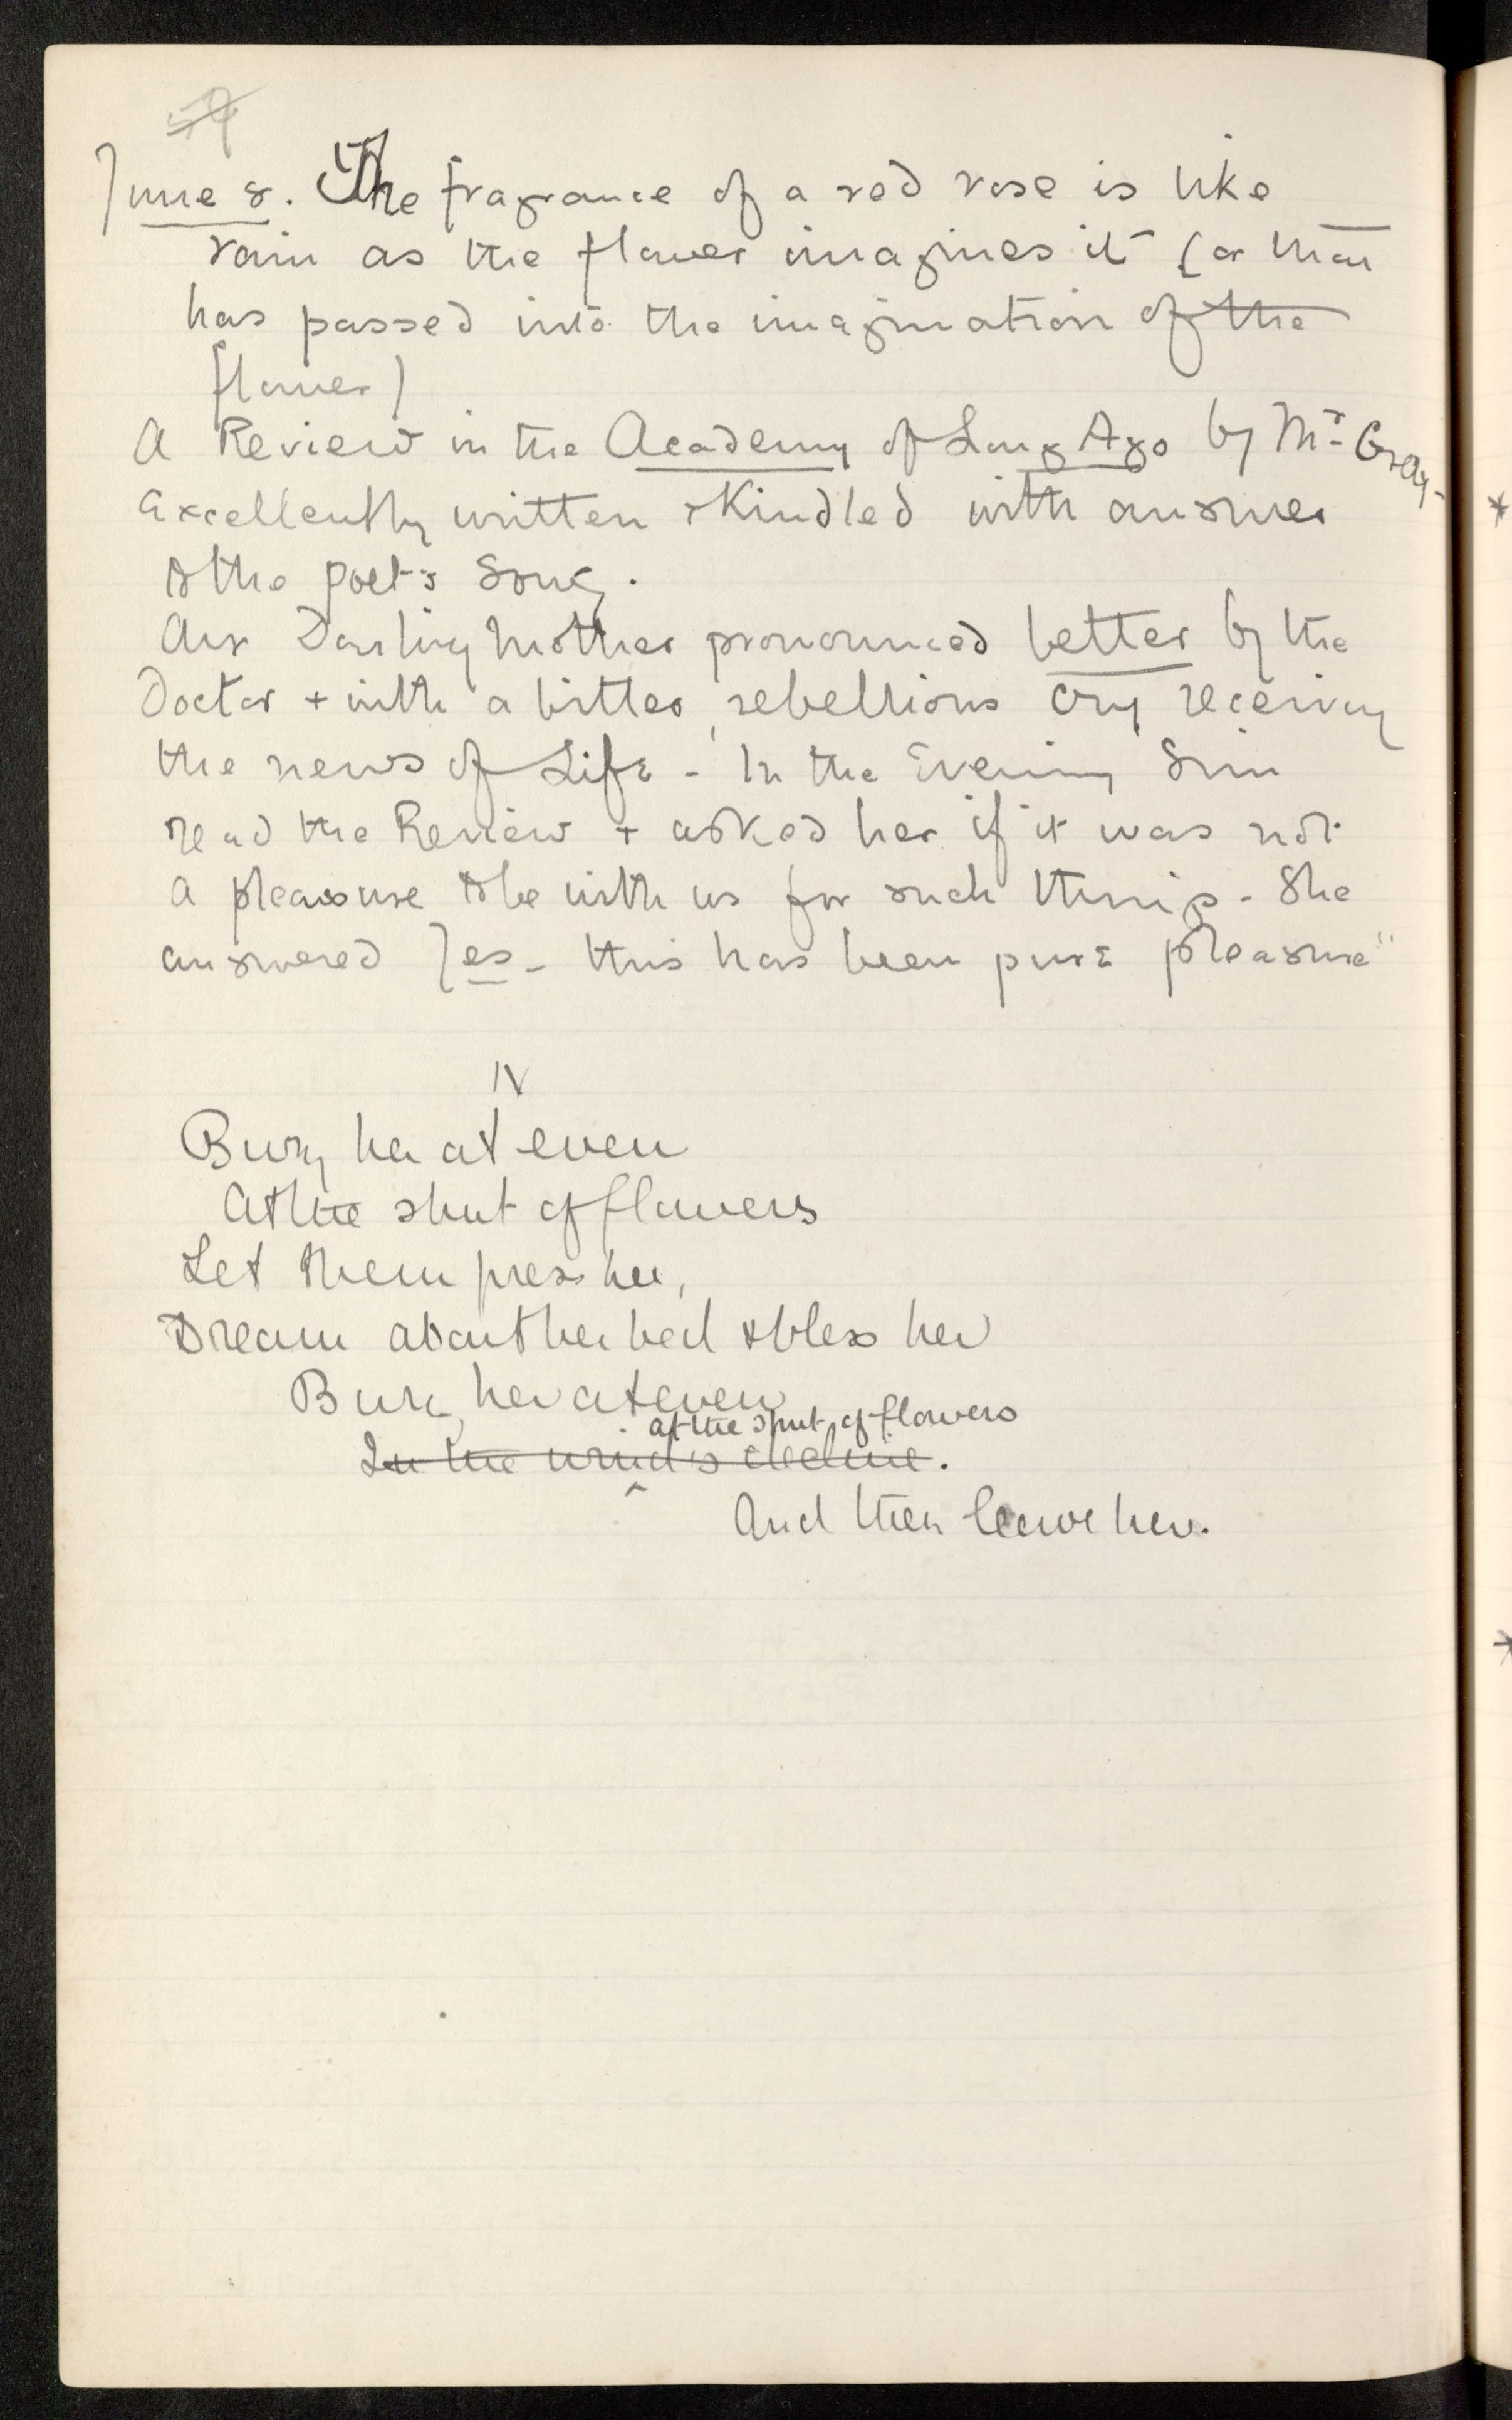 June 8. The fragrance of a red rose is like
rain as the flower imagines it (or that
has passed into the imagination of the
flower)
A Review in the Academy of Long Ago by Mr Gray-
Excellently written & kindled with answer
to the poet's song.
Our Darling Mother pronounced better by the
Doctor + with a bitter, rebellious cry receiving
the news of Life - In the Evening Sim
read the Review + asked her if it was not
a pleasure to be with us for such things - She
answered Yes - this has been pure pleasure"
IV
Bury her at even
At the shut of flowers
Let them press her,
Dream about her bed & bless her
Bury her at even
at the shut of flowers
In the wind's decline.
And then leave her.